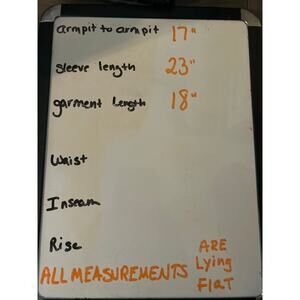 armpit to armpit 17"
sleeve length 23"
garment Length 18"
Waist
Inseam
Rise
ALL MEASUREMENTS ARE
Lying
FlaT